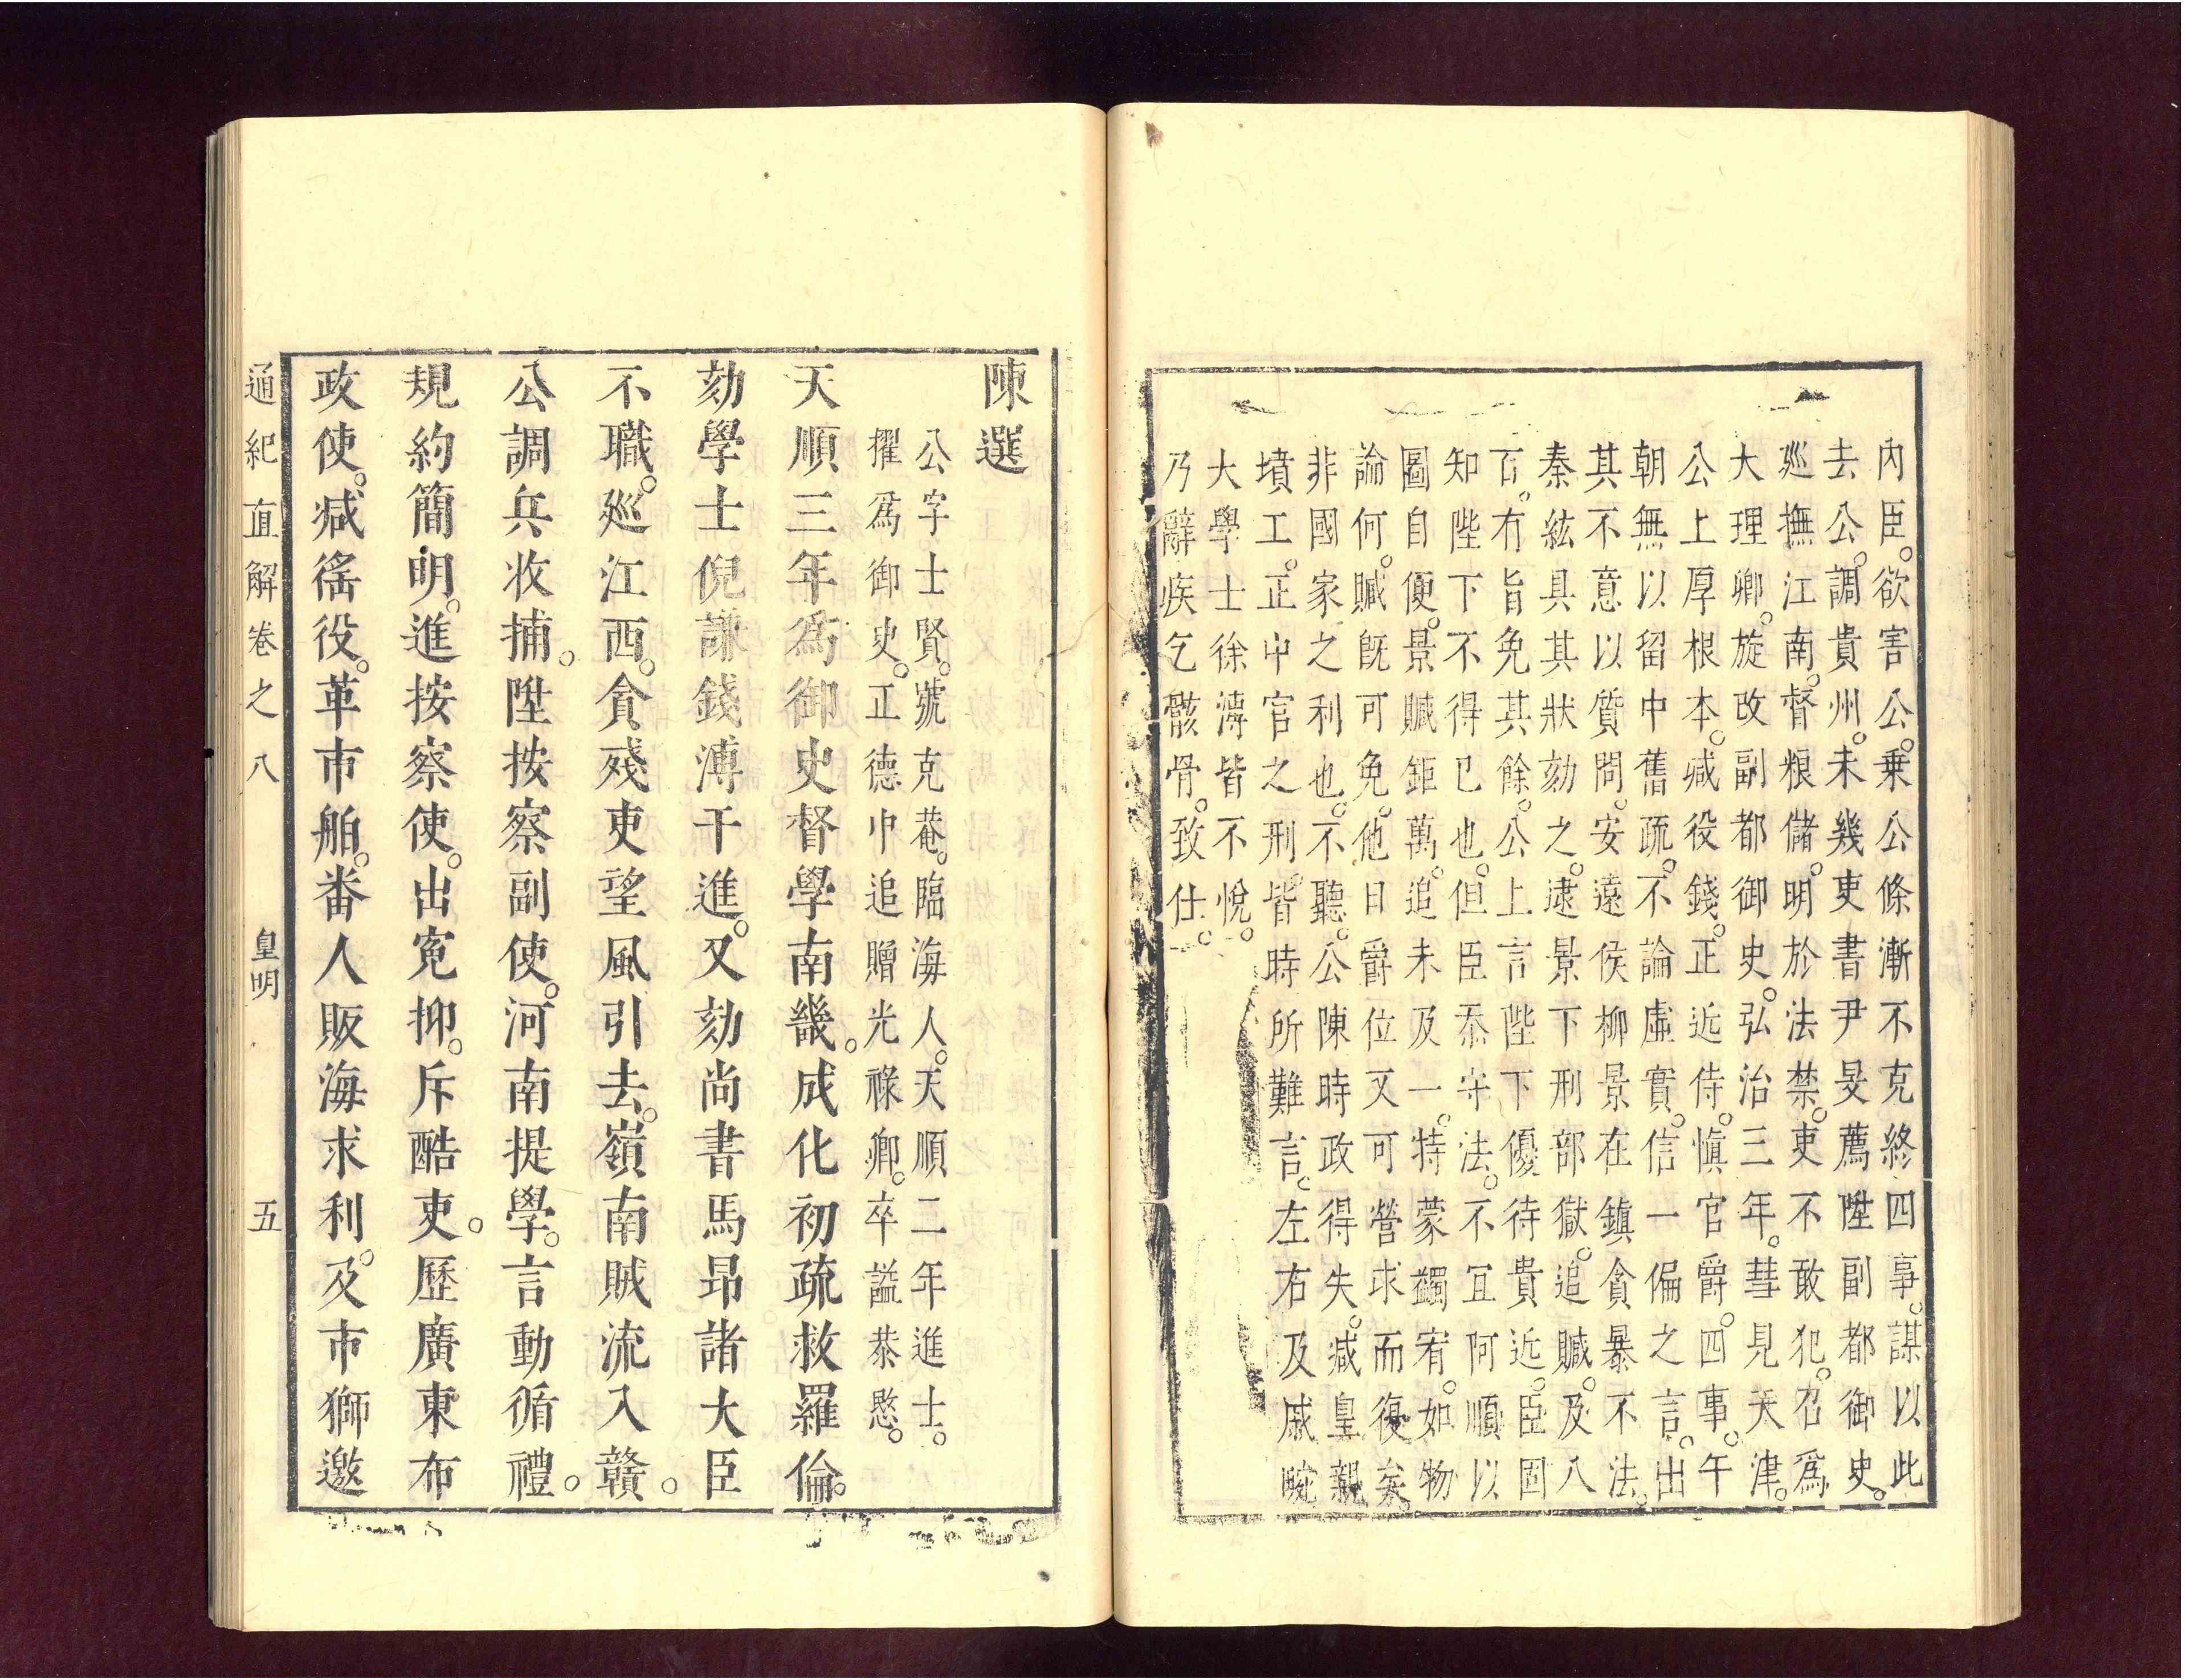 內臣。欲害公。乗公條漸不克終四事。謀以此
去公。調貴州。未幾吏書尹旻薦陞副都御史。
廵撫江南。督粮儲。明於法禁。吏不敢犯。召爲
大理卿。旋改副都御史。弘治三年。彗見天津。
公上厚根本。减役錢。正近侍。愼官爵。四事。午
朝無以留中舊疏。不論虛實。信一偏之言。出
其不意以質問。安遠侯柳景在鎮貪暴不法。
秦紘具其狀劾之。逮景下刑部獄。追贓。及八
百。有旨免其餘。公上言陛下優待貴近。臣固
知陛下不得已也。但臣忝守法。不宜阿順以
圖自便。景贓鉅萬。追未及一。特蒙蠲宥。如物
論何。贓旣可免。他日爵位又可營求而復矣。
非國家之利也。不聽。公陳時政得失。减皇親
墳工。正中官之刑。皆時所難言。左右及戚畹
大學士徐溥皆不悅。
乃辭疾乞骸骨。致仕。
陳選
公字士賢。號克菴。臨海人。天順二年進士。
擢爲御史。正德中追贈光祿卿。卒謚恭愍。
天順三年爲御史督學南畿。成化初疏救羅倫。
劾學士倪謙錢溥干進。又劾尚書馬昂諸大臣
不職。廵江西。貪殘吏望風引去。嶺南賊流入贛。
公調兵收捕。陞按察副使。河南提學。言動循禮。
規約簡明。進按察使。出寃抑。斥酷吏。歷廣東布
政使。减徭役。革市舶。番人販海求利。及市獅邀
通紀直解卷之八 皇明 五